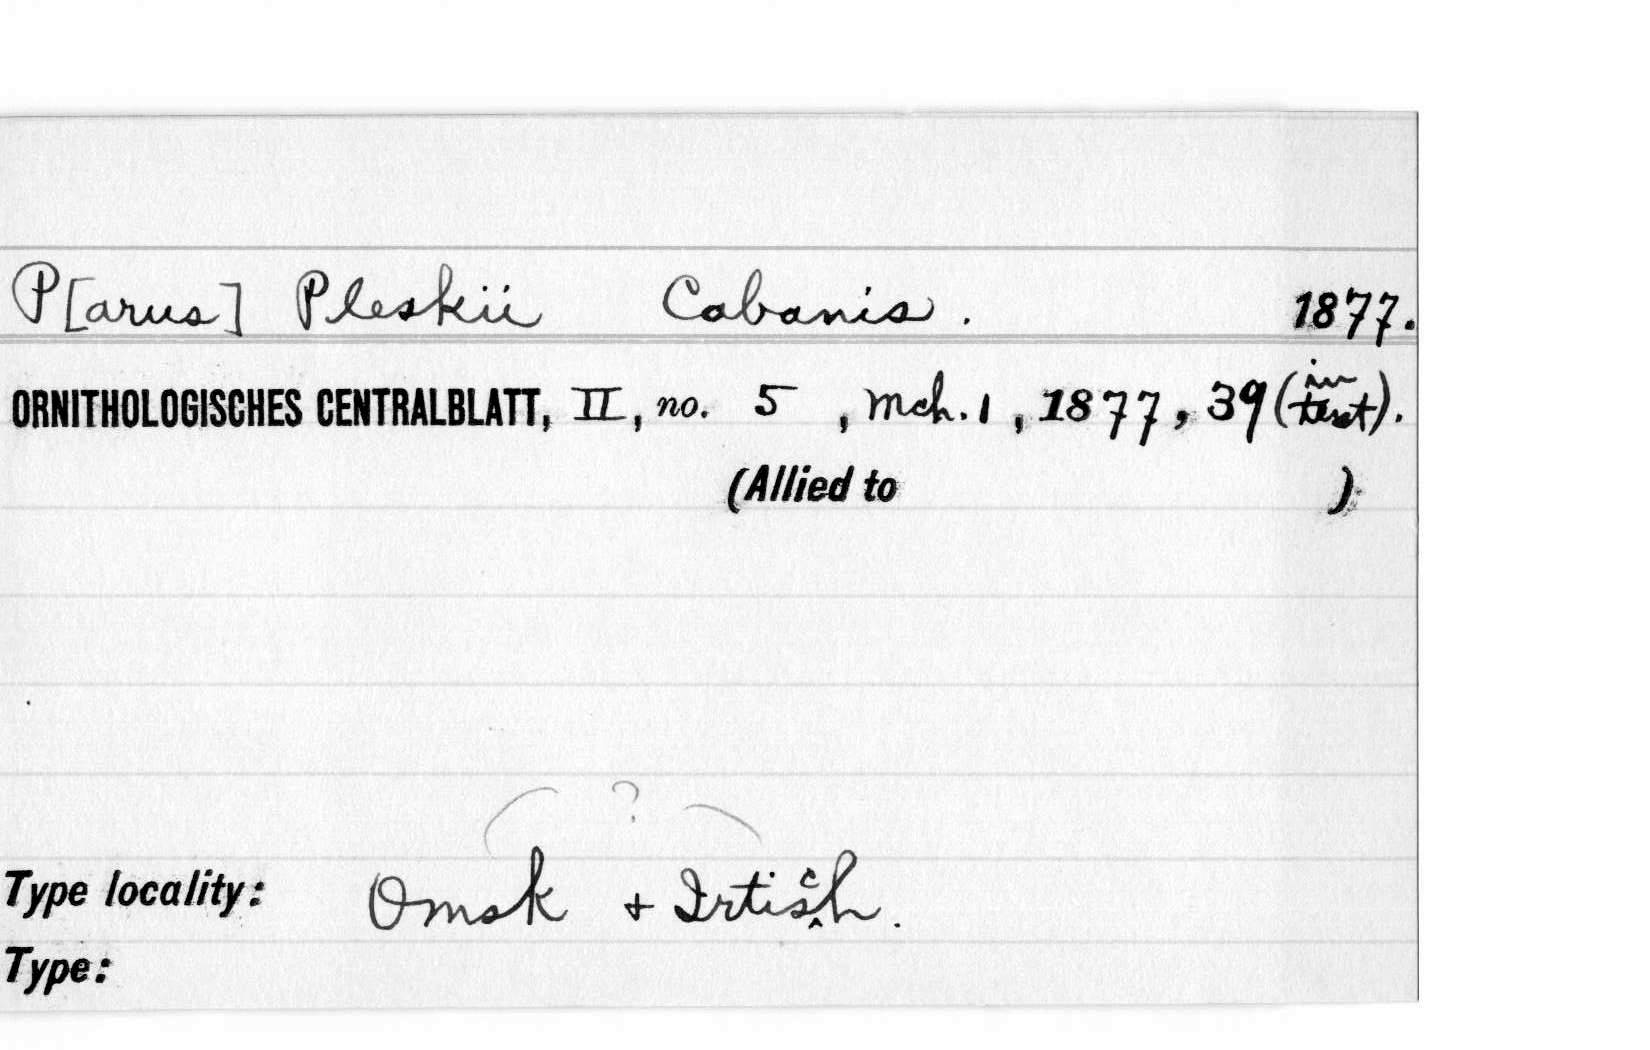 P[arus] Pleskii Cabanis. 1877.
ORNITHOLOGISCHES CENTRALBLATT, II, no. 5, Mch. 1, 1877, 39 (in text).
(Allied to )
?
Type locality: Omsk + Irtisch.
Type: